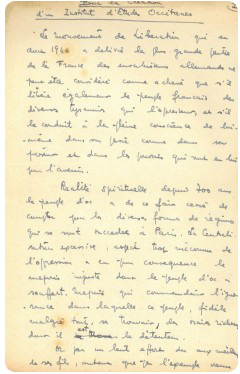 Pour la création
d'un Institut d'Etudes Occitanes
Le mouvement de Libération qui en
1944 a délivré la plus grande partie
de la France des envahisseurs allemands ne
peut être considéré comme achevé que s'il
libère également le peuple français des
diverses tyrannies qui l'oppressent et s'il
le conduit à la pleine conscience de lui-
même dans son passé comme dans son
présent et dans les promesses qui sont en lui
pour l'avenir.
Réalité spirituelle depuis 700 ans
le peuple d'oc a de ce fait cessé de
compter pour les diverses formes de régime
qui se sont succédés à Paris. La Centrali-
sation excessive, aspect trop méconnu de
l'oppression a eu pour conséquence le
mépris injuste dont le peuple d'oc a
souffert, mépris qui commandait l'igno-
rance dans laquelle ce peuple, fidèle
malgré tout, se trouvait des vraies richesses
dont il est le détenteur.
Or par un lent effort des meilleurs
de ses fils,